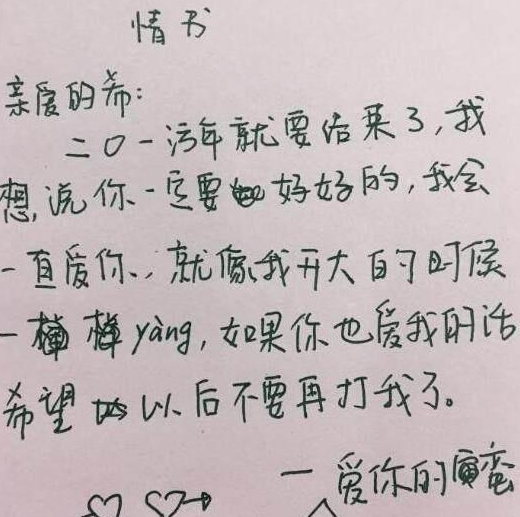 情书
亲爱的希:
二〇一 年就要结束了,我
想,说你一定要 好好的,我会
一直爱你,就像我开大 的时候
一 yàng,如果你也爱我的话
希望 以后不要再打我了。
一爱你的